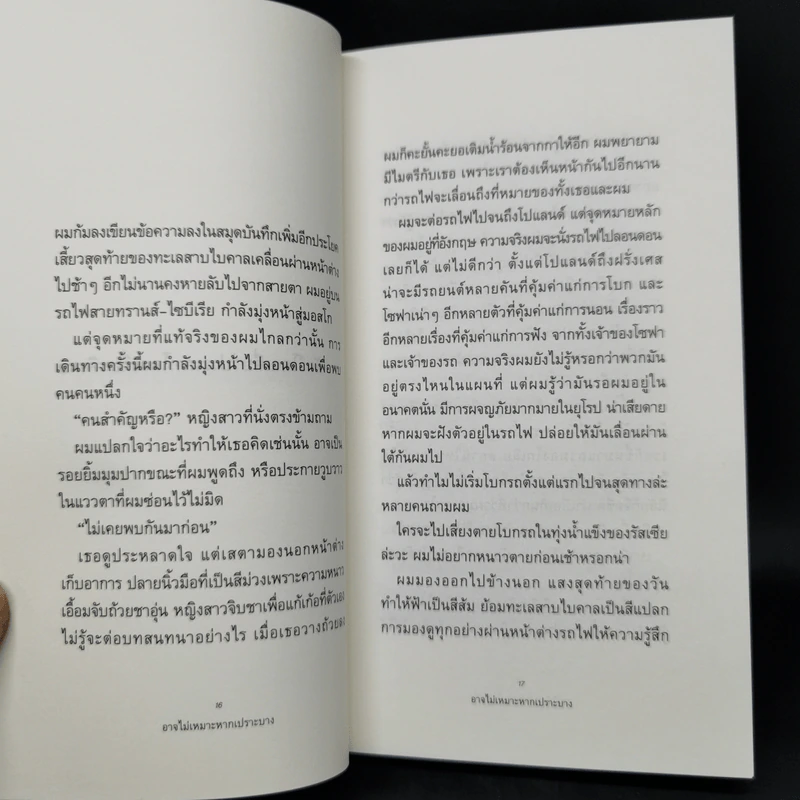 ผมก้มลงเขียนข้อความลงในสมุดบันทึกเพิ่มอีกประโยค
เสี้ยวสุดท้ายของทะเลสาบไบคาลเคลื่อนผ่านหน้าต่าง
ไปช้าๆ อีกไม่นานคงหายลับไปจากสายตา ผมอยู่บน
รถไฟสายทรานส์-ไซบีเรีย กำลังมุ่งหน้าสู่มอสโก
แต่จุดหมายที่แท้จริงของผมไกลกว่านั้น การ
เดินทางครั้งนี้ผมกำลังมุ่งหน้าไปลอนดอนเพื่อพบ
คนคนหนึ่ง
“คนสำคัญหรือ?” หญิงสาวที่นั่งตรงข้ามถาม
ผมแปลกใจว่าอะไรทำให้เธอคิดเช่นนั้น อาจเป็น
รอยยิ้มมุมปากขณะที่ผมพูดถึง หรือประกายวูบวาว
ในแววตาที่ผมซ่อนไว้ไม่มิด
“ไม่เคยพบกันมาก่อน”
เธอดูประหลาดใจ แต่เสตามองนอกหน้าต่าง
เก็บอาการ ปลายนิ้วมือที่เป็นสีม่วงเพราะความหนาว
เอื้อมจับถ้วยชาอุ่น หญิงสาวจิบชาเพื่อแก้เก้อที่ตัวเอง
ไม่รู้จะต่อบทสนทนาอย่างไร เมื่อเธอวางถ้วยลง
16
อาจไม่เหมาะหากเปราะบาง
ผมก็คะยั้นคะยอเติมน้ำร้อนจากกาให้อีก ผมพยายาม
มีไมตรีกับเธอ เพราะเราต้องเห็นหน้ากันไปอีกนาน
กว่ารถไฟจะเลื่อนถึงที่หมายของทั้งเธอและผม
ผมจะต่อรถไฟไปจนถึงโปแลนด์ แต่จุดหมายหลัก
ของผมอยู่ที่อังกฤษ ความจริงผมจะนั่งรถไฟไปลอนดอน
เลยก็ได้ แต่ไม่ดีกว่า ตั้งแต่โปแลนด์ถึงฝรั่งเศส
น่าจะมีรถยนต์หลายคันที่คุ้มค่าแก่การโบก และ
โซฟาเน่าๆ อีกหลายตัวที่คุ้มค่าแก่การนอน เรื่องราว
อีกหลายเรื่องที่คุ้มค่าแก่การฟัง จากทั้งเจ้าของโซฟา
และเจ้าของรถ ความจริงผมยังไม่รู้หรอกว่าพวกมัน
อยู่ตรงไหนในแผนที่ แต่ผมรู้ว่ามันรอผมอยู่ใน
อนาคตนั่น มีการผจญภัยมากมายในยุโรป น่าเสียดาย
หากผมจะฝังตัวอยู่ในรถไฟ ปล่อยให้มันเลื่อนผ่าน
ใต้ก้นผมไป
แล้วทำไมไม่เริ่มโบกรถตั้งแต่แรกไปจนสุดทางล่ะ
หลายคนถามผม
ใครจะไปเสี่ยงตายโบกรถในทุ่งน้ำแข็งของรัสเซีย
ล่ะวะ ผมไม่อยากหนาวตายก่อนเช้าหรอกน่า
ผมมองออกไปข้างนอก แสงสุดท้ายของวัน
ทำให้ฟ้าเป็นสีส้ม ย้อมทะเลสาบไบคาลเป็นสีแปลก
การมองดูทุกอย่างผ่านหน้าต่างรถไฟให้ความรู้สึก
17
อาจไม่เหมาะหากเปราะบาง